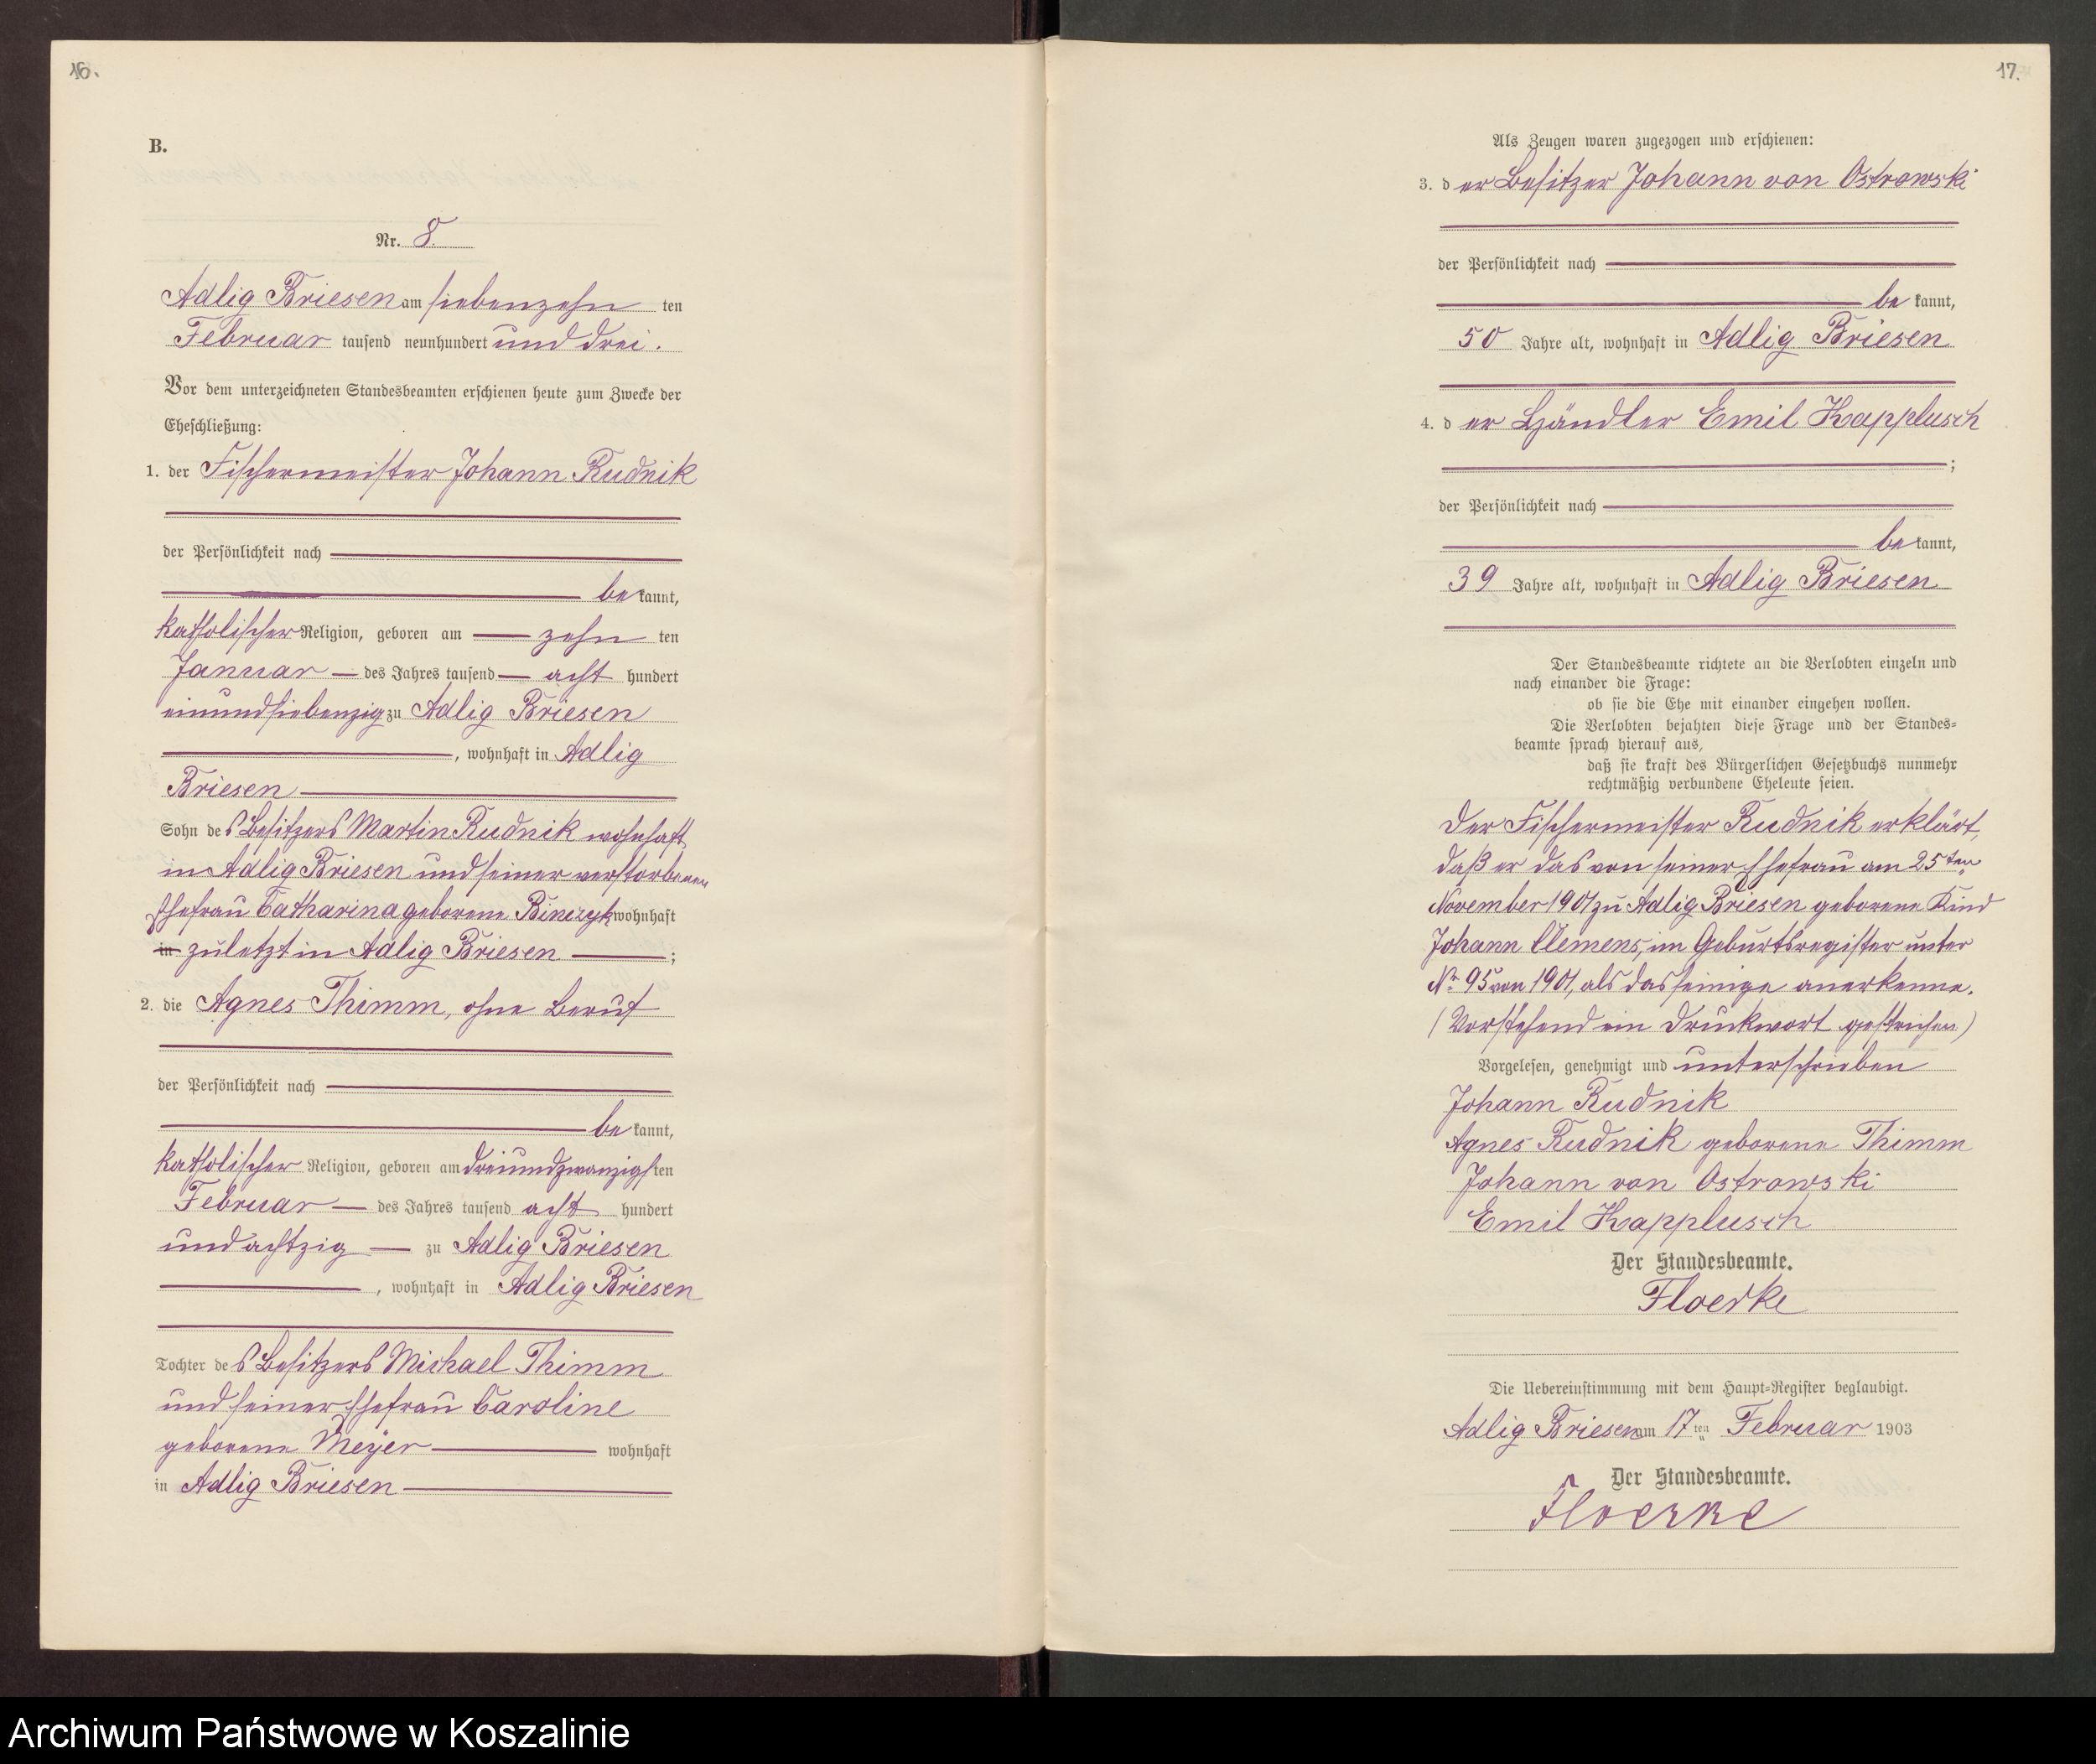 16.
B.
Nr. 8.
Adlig Briesen am siebenzehn ten
Februar tausend neunhundert und drei.
Vor dem unterzeichneten Standesbeamten erschienen heute zum Zwecke der
Eheschließung:
1. der Fischermeister Johann Rudnik
der Persönlichkeit nach
be kannt,
katholischer Religion, geboren am zehn ten
Januar des Jahres tausend acht hundert
einundsiebenzig zu Adlig Briesen
, wohnhaft in Adlig
Briesen
Sohn des Besitzers Martin Rudnik wohnhaft
in Adlig Briesen und seiner verstorbenen
Ehefrau Catharina geborene Binczyk wohnhaft
in zuletzt in Adlig Briesen ;
2. die Agnes Thimm, ohne Beruf
der Persönlichkeit nach
be kannt,
katholischer Religion, geboren am dreiundzwanzigsten
Februar des Jahres tausend acht hundert
undachtzig zu Adlig Briesen
, wohnhaft in Adlig Briesen
Tochter des Besitzers Michael Thimm
und seiner Ehefrau Caroline
geborene Meyer wohnhaft
in Adlig Briesen
17.
Als Zeugen waren zugezogen und erschienen:
3. der Besitzer Johann von Ostrowski
der Persönlichkeit nach
be kannt,
50 Jahre alt, wohnhaft in Adlig Briesen
4. der Händler Emil Kapplusch
;
der Persönlichkeit nach
be kannt,
39 Jahre alt, wohnhaft in Adlig Briesen
Der Standesbeamte richtete an die Verlobten einzeln und
nach einander die Frage:
ob sie die Ehe mit einander eingehen wollen.
Die Verlobten bejahten diese Frage und der Standes=
beamte sprach hierauf aus,
daß sie kraft des Bürgerlichen Gesetzbuchs nunmehr
rechtmäßig verbundene Eheleute seien.
Der Fischermeister Rudnik erklärt,
daß er das von seiner Ehefrau am 25ten
November 1901 zu Adlig Briesen geborene Kind
Johann Clemens, im Geburtsregister unter
Nr. 95 von 1901, als das seinige anerkenne.
(Vorstehend ein Druckwort gestrichen)
Vorgelesen, genehmigt und unterschrieben
Johann Rudnik
Agnes Rudnik geborene Thimm
Johann von Ostrowski
Emil Kapplusch
Der Standesbeamte.
Floerke
Die Uebereinstimmung mit dem Haupt=Register beglaubigt.
Adlig Briesen am 17ten Februar 1903
Der Standesbeamte.
Floerke
Archiwum Państwowe w Koszalinie